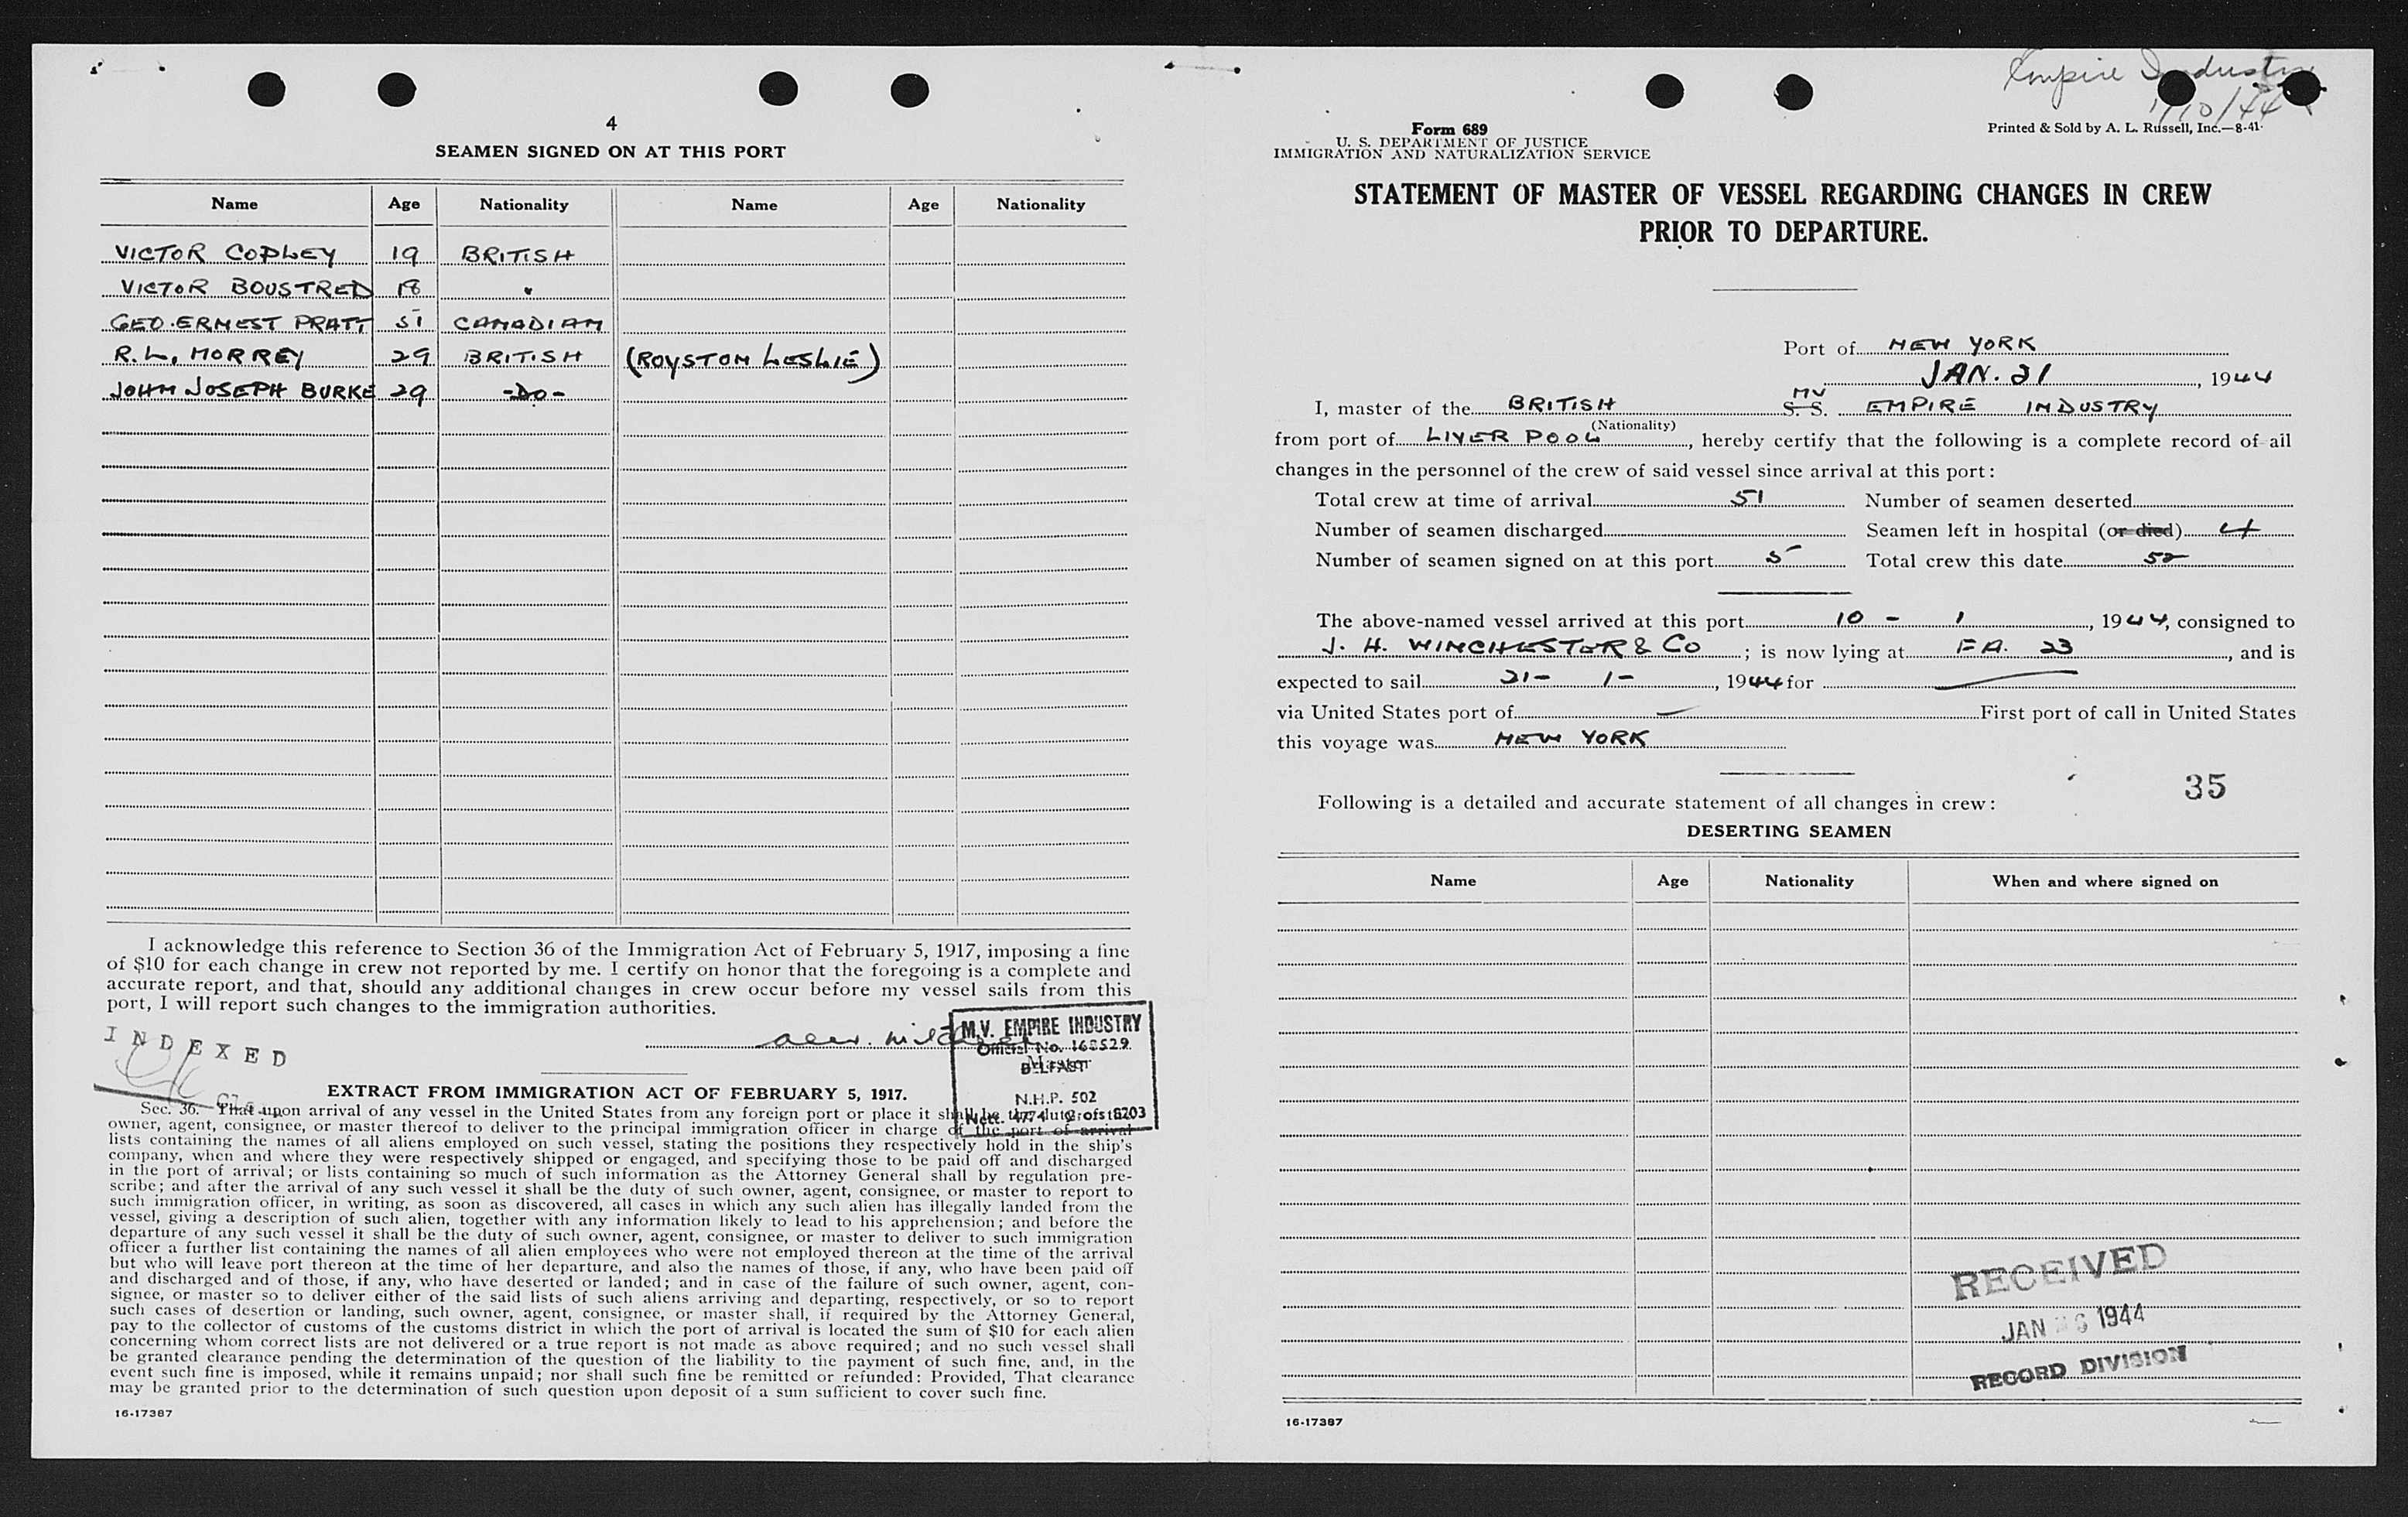 4
SEAMEN SIGNED ON AT THIS PORT
Name Age Nationality Name Age Nationality
VICTOR COPLEY 19 BRITISH
VICTOR BOUSTRED 18 "
GEO. ERNEST PRATT 51 CANADIAN
R. L. MORREY 29 BRITISH (ROYSTON LESLIE)
JOHN JOSEPH BURKE 29 -DO-
I acknowledge this reference to Section 36 of the Immigration Act of February 5, 1917, imposing a fine
of $10 for each change in crew not reported by me. I certify on honor that the foregoing is a complete and
accurate report, and that, should any additional changes in crew occur before my vessel sails from this
port, I will report such changes to the immigration authorities.
INDEXED
M.V. EMPIRE INDUSTRY
Official No. 168529
BELFAST
N.H.P. 502
Nett. 4774 Gross 8203
EXTRACT FROM IMMIGRATION ACT OF FEBRUARY 5, 1917.
Sec. 36. That upon arrival of any vessel in the United States from any foreign port or place it shall be the duty of the
owner, agent, consignee, or master thereof to deliver to the principal immigration officer in charge of the port of arrival
lists containing the names of all aliens employed on such vessel, stating the positions they respectively hold in the ship's
company, when and where they were respectively shipped or engaged, and specifying those to be paid off and discharged
in the port of arrival; or lists containing so much of such information as the Attorney General shall by regulation pre-
scribe; and after the arrival of any such vessel it shall be the duty of such owner, agent, consignee, or master to report to
such immigration officer, in writing, as soon as discovered, all cases in which any such alien has illegally landed from the
vessel, giving a description of such alien, together with any information likely to lead to his apprehension; and before the
departure of any such vessel it shall be the duty of such owner, agent, consignee, or master to deliver to such immigration
officer a further list containing the names of all alien employees who were not employed thereon at the time of the arrival
but who will leave port thereon at the time of her departure, and also the names of those, if any, who have been paid off
and discharged and of those, if any, who have deserted or landed; and in case of the failure of such owner, agent, con-
signee, or master so to deliver either of the said lists of such aliens arriving and departing, respectively, or so to report
such cases of desertion or landing, such owner, agent, consignee, or master shall, if required by the Attorney General,
pay to the collector of customs of the customs district in which the port of arrival is located the sum of $10 for each alien
concerning whom correct lists are not delivered or a true report is not made as above required; and no such vessel shall
be granted clearance pending the determination of the question of the liability to the payment of such fine, and, in the
event such fine is imposed, while it remains unpaid; nor shall such fine be remitted or refunded: Provided, That clearance
may be granted prior to the determination of such question upon deposit of a sum sufficient to cover such fine.
16-17387
Empire Industry
1/10/44
Form 689
U. S. DEPARTMENT OF JUSTICE
IMMIGRATION AND NATURALIZATION SERVICE
Printed & Sold by A. L. Russell, Inc.—8-41
STATEMENT OF MASTER OF VESSEL REGARDING CHANGES IN CREW
PRIOR TO DEPARTURE.
Port of NEW YORK
JAN. 21, 1944
I, master of the BRITISH S. S. MV EMPIRE INDUSTRY
(Nationality)
from port of LIVERPOOL, hereby certify that the following is a complete record of all
changes in the personnel of the crew of said vessel since arrival at this port:
Total crew at time of arrival 51 Number of seamen deserted
Number of seamen discharged Seamen left in hospital (or died) 4
Number of seamen signed on at this port 5 Total crew this date 52
The above-named vessel arrived at this port 10 - 1, 1944, consigned to
J. H. WINCHESTER & Co; is now lying at F.A. 23, and is
expected to sail 21- 1-, 1944 for —
via United States port of — First port of call in United States
this voyage was NEW YORK
35
Following is a detailed and accurate statement of all changes in crew:
DESERTING SEAMEN
Name Age Nationality When and where signed on
RECEIVED
JAN 1944
RECORD DIVISION
16-17387